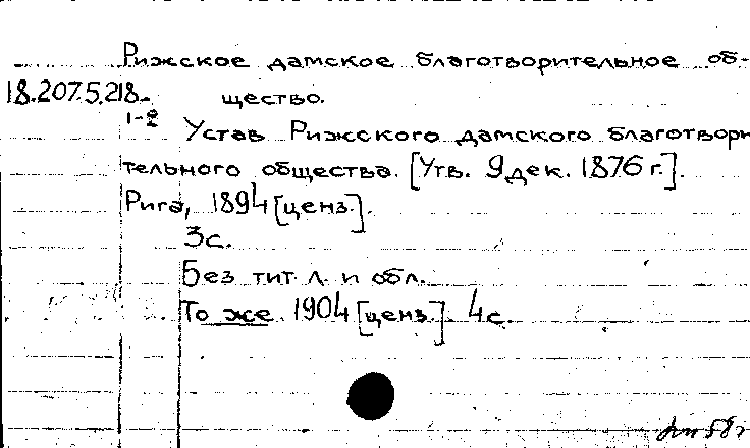 Рижское дамское благотворительное об-
18.207.5.218 щество.
1-2
Устав Рижского дамского благотвори
тельного общества. [Утв. 9 дек. 1876 г.].
Рига, 1894 [ценз.].
3 с.
Без тит. л. и обл.
То же. 1904 [ценз.]. 4 с.